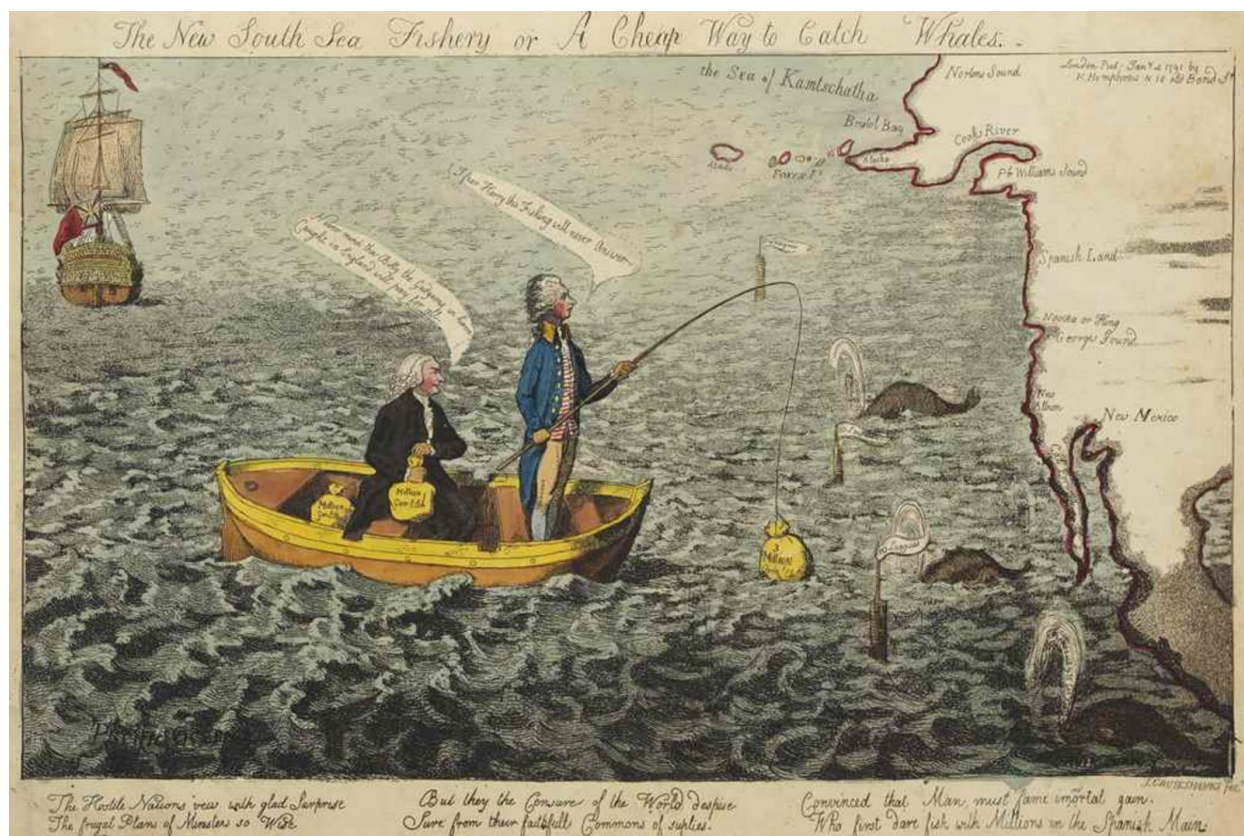 The New South Sea Fishery or A Cheap Way to Catch Whales.
London Pub. Jany. 4 1791 by
H. Humphries N 18 Old Bond St
the Sea of Kamtschatha
Nortons Sound
Bristol Bay
Cooks River
Alaska
Foxes Is
Ps Williams Sound
Spanish Land
Nootka or King
Georges Sound
New
Albion
New Mexico
I fear Harry this Fishing will never Answer
Never mind that Billy the Gudgeons we have
Caught in England will pay for all
Million
Million
3
Million
Pacific Ocean
J. CRUIKSHANKS Fec
The Hostile Nations veiw with glad Surprise
The frugal Plans of Ministers so Wise
But they the Censure of the World despise
Sure from their faithfull Commons of suplies.
Convinced that Man, must fame imortal gain.
Who first dare fish with Millions in the Spanish Main.